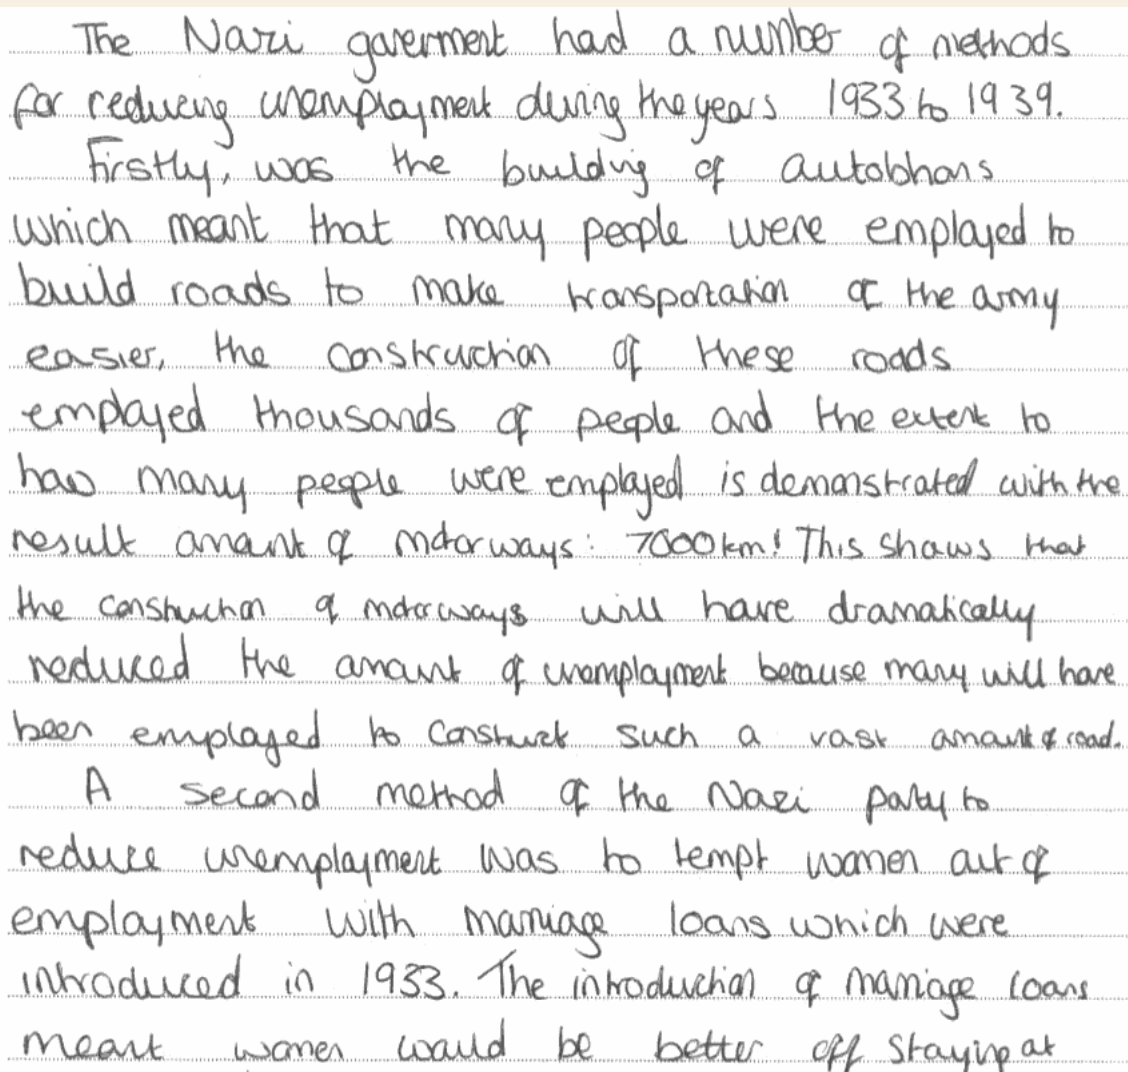 The Nazi goverment had a number of methods
for reducing unemployment during the years 1933 to 1939.
Firstly, was the building of autobhans
which meant that many people were employed to
build roads to make transportation of the army
easier, the construction of these roads
employed thousands of people and the extent to
how many people were employed is demonstrated with the
result amount of motorways: 7000km! This shows that
the construction of motorways will have dramatically
reduced the amount of unemployment because many will have
been employed to construct such a vast amount of road.
A second method of the Nazi party to
reduce unemployment was to tempt women out of
employment with marriage loans which were
introduced in 1933. The introduction of marriage loans
meant women would be better off staying at